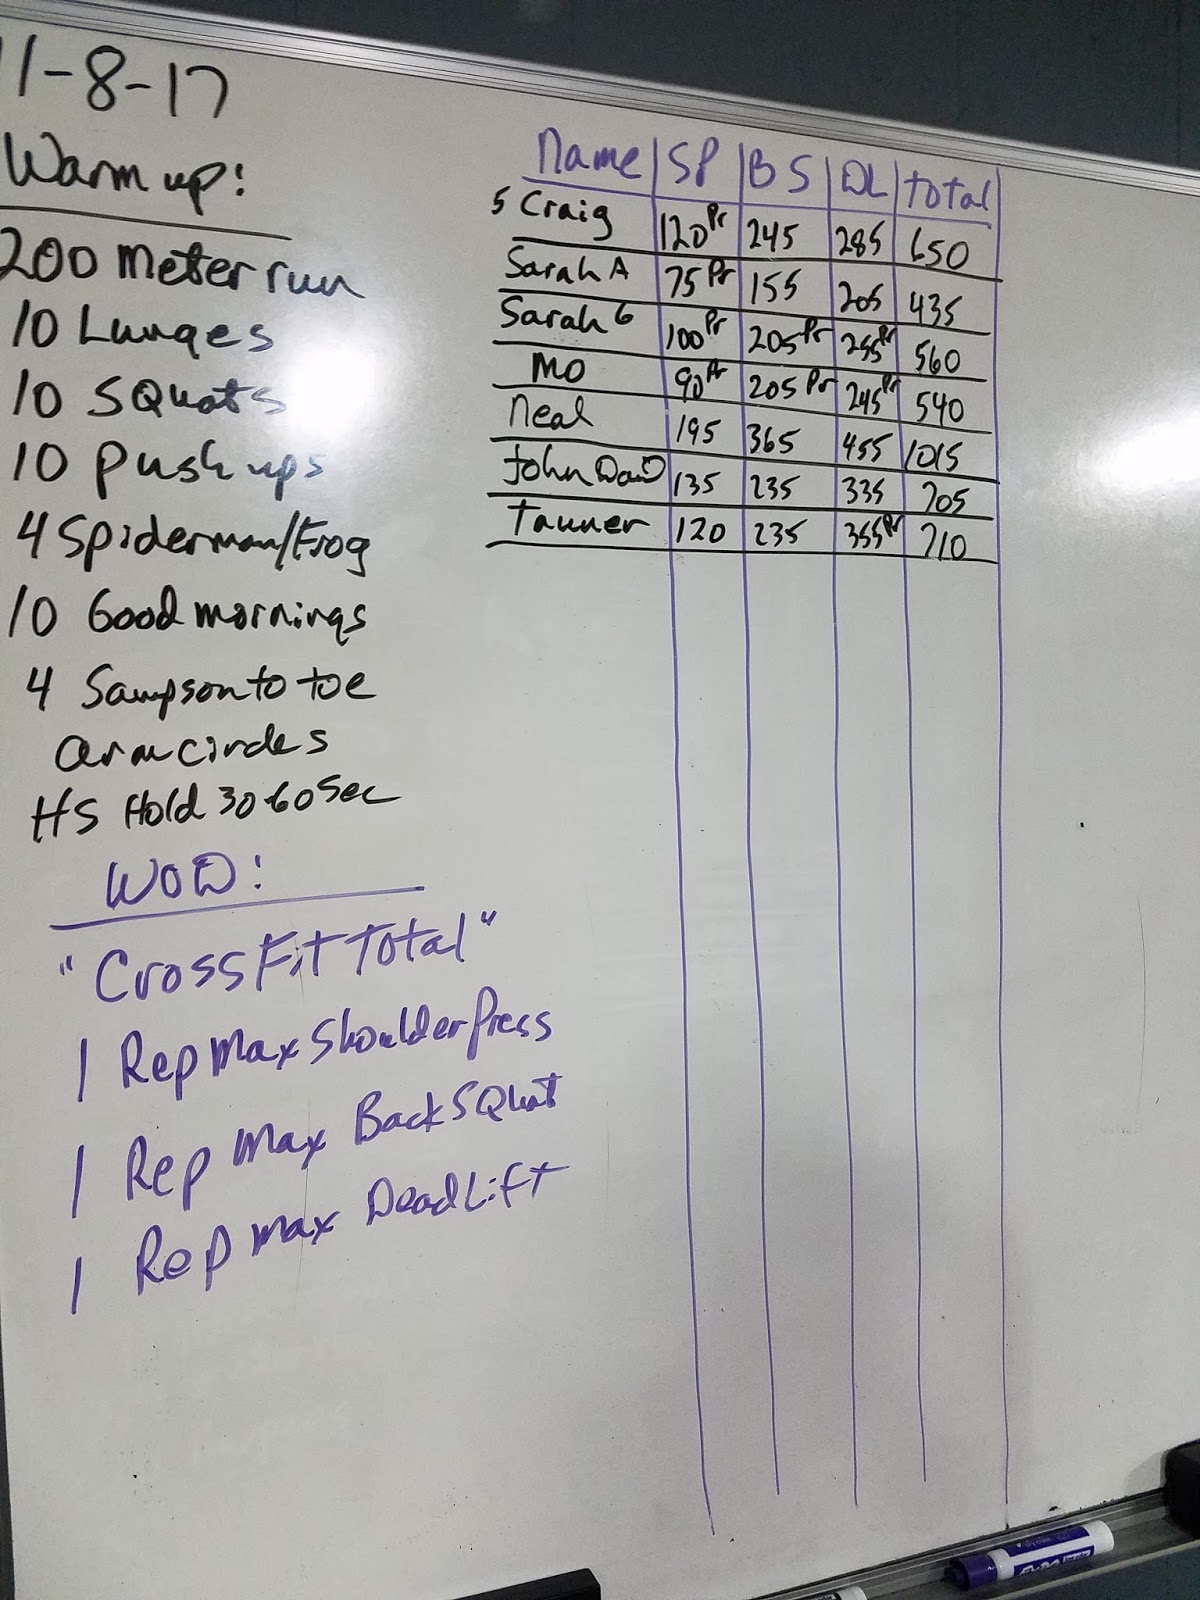 11-8-17
Warm up:
200 Meter run
10 Lunges
10 SQuats
10 Push ups
4 Spiderman/Frog
10 Good mornings
4 Sampson to toe
arm circles
HS Hold 30-60 Sec
WOD:
"CrossFit Total"
1 Rep Max Shoulder Press
1 Rep Max Back SQuat
1 Rep Max DeadLift
Name SP BS DL total
5 Craig 120 Pr 245 285 650
Sarah A 75 Pr 155 205 435
Sarah G 100 Pr 205 Pr 255 Pr 560
Mo 90 Pr 205 Pr 245 Pr 540
Neal 195 365 455 1015
John 135 235 335 705
Tanner 120 235 355 Pr 710
EXPO